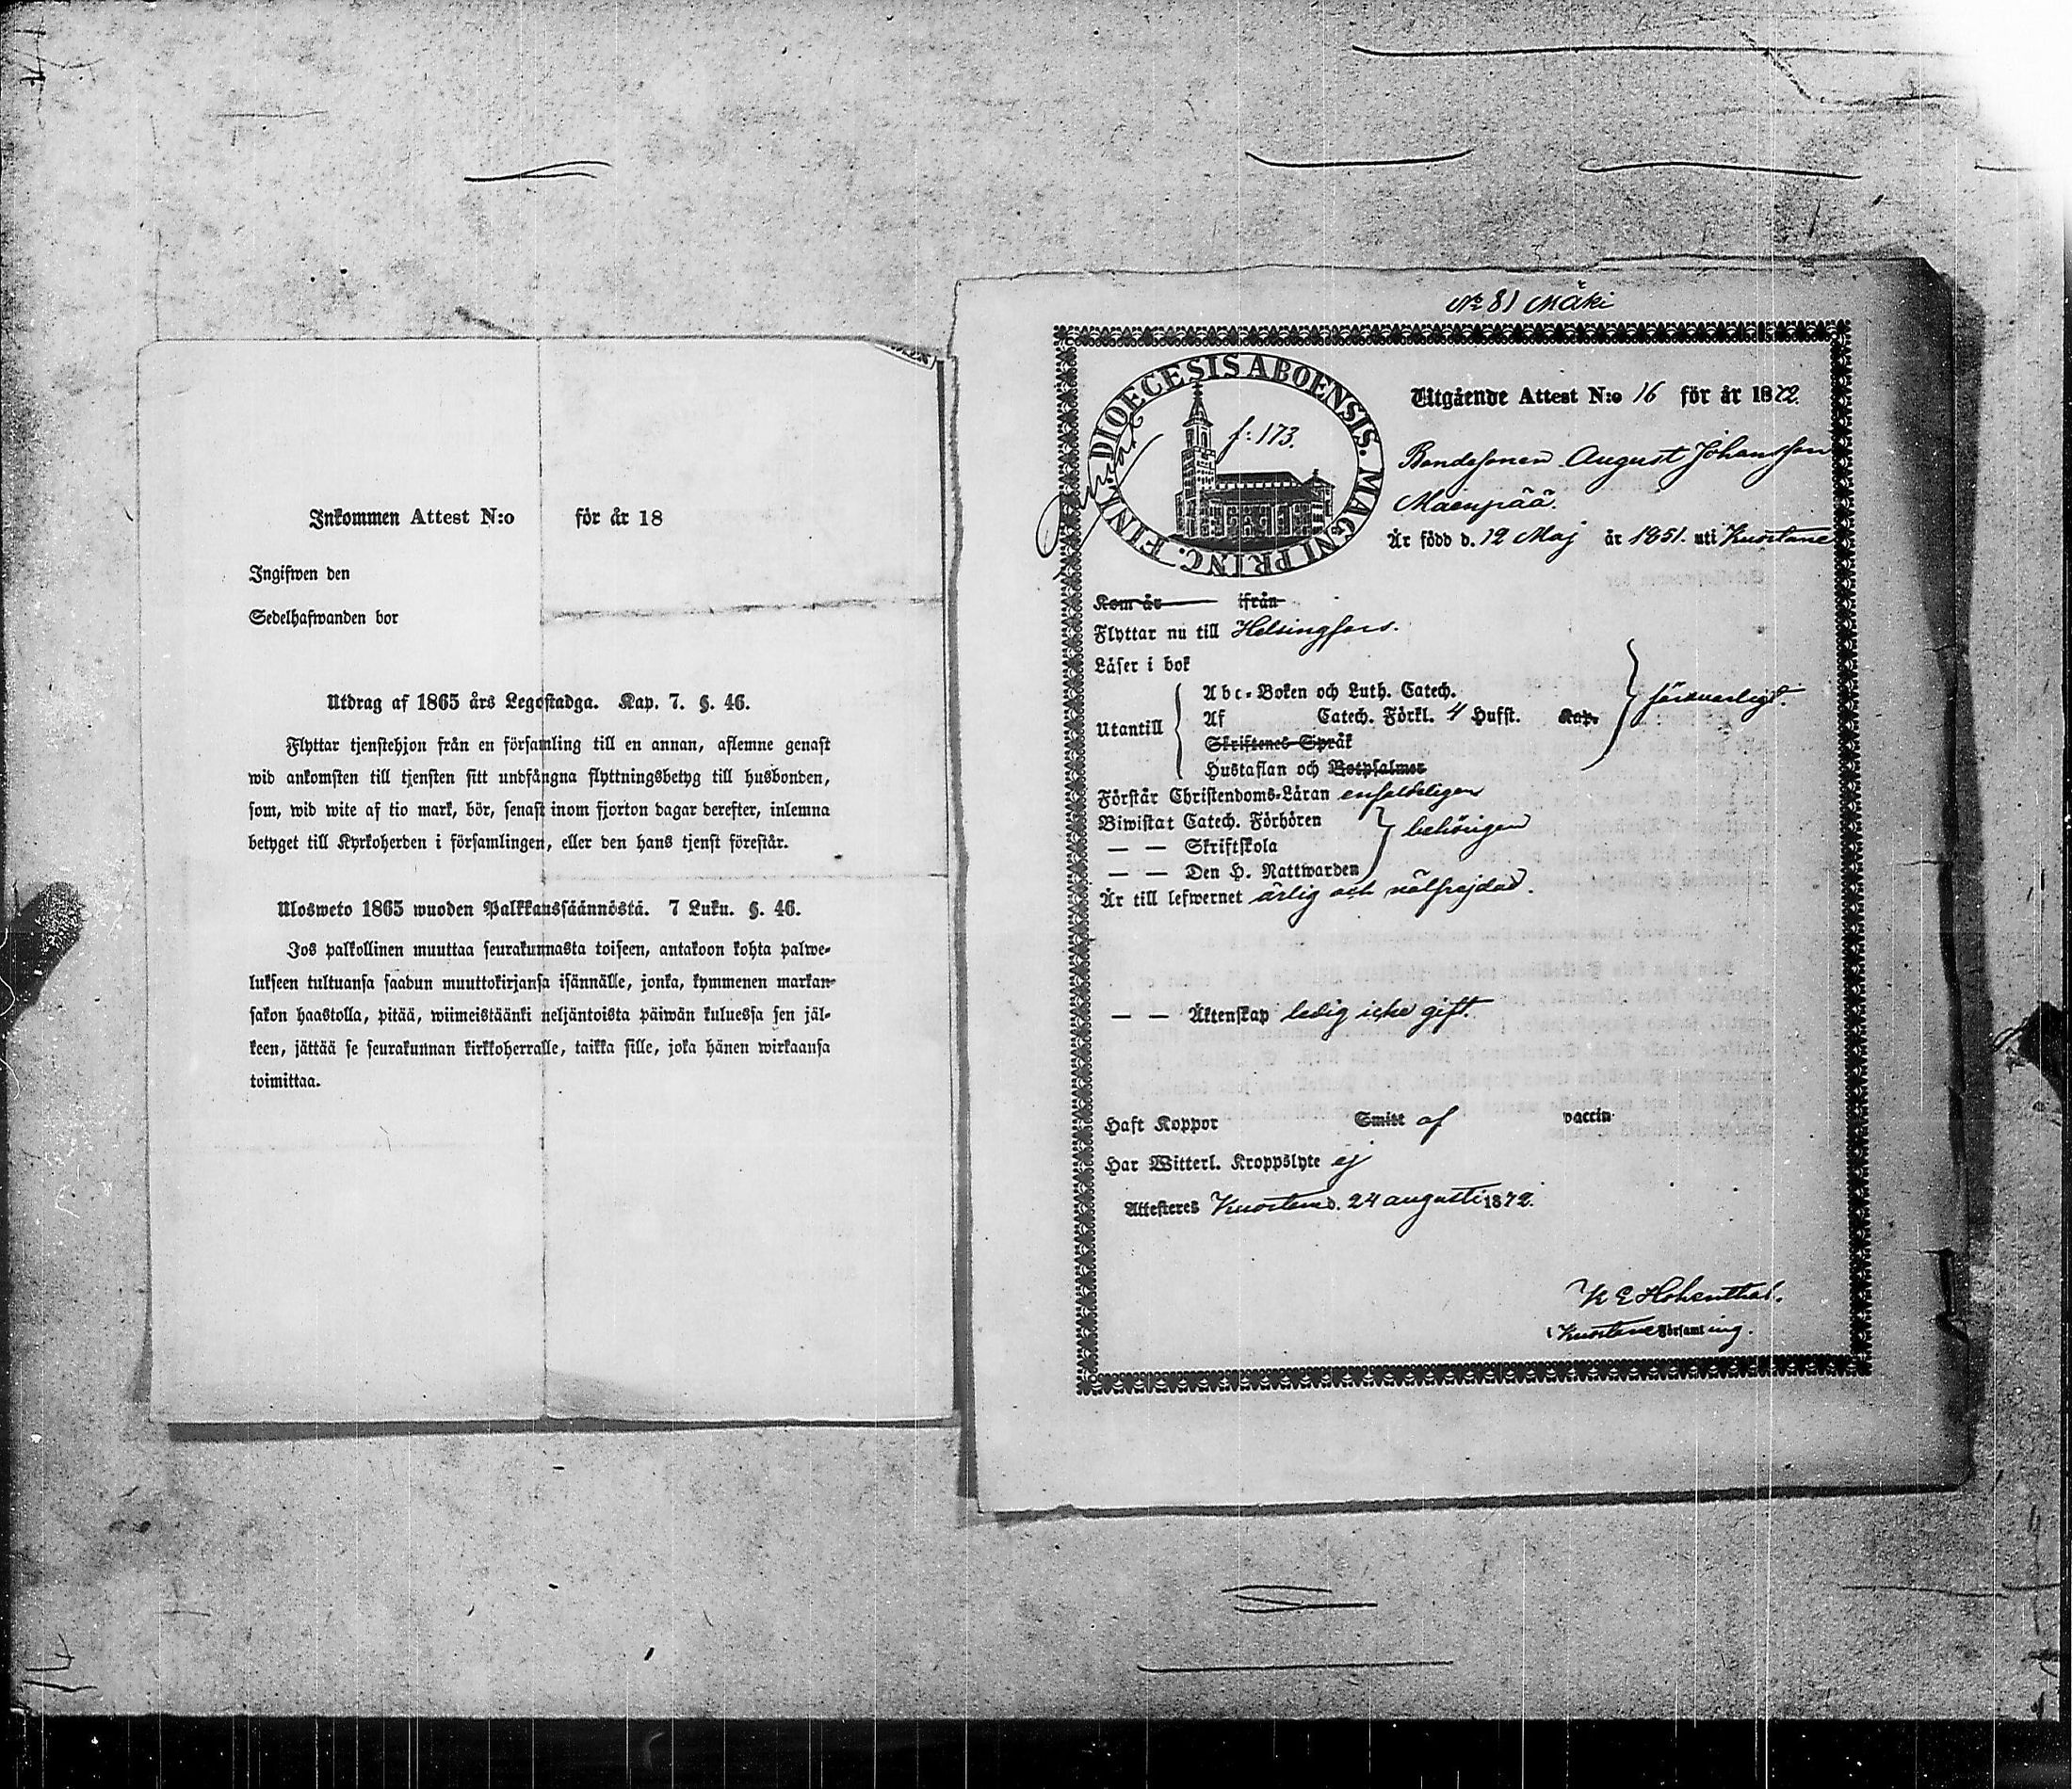 Inkommen Attest N:o för år 18
Ingifwen den
Sedelhafwanden bor
Utdrag af 1865 års Legostadga. Kap. 7. §. 46.
Flyttar tjenstehjon från en församling till en annan, aflemne genast
wid ankomsten till tjensten sitt undfångna flyttningsbetyg till husbonden,
som, wid wite af tio mark, bör, senast inom fjorton dagar derefter, inlemna
betyget till Kyrkoherden i församlingen, eller den hans tjenst förestår.
Ulosweto 1865 wuoden Palkkaussäännöstä. 7 Luku. §. 46.
Jos palkollinen muuttaa seurakunnasta toiseen, antakoon kohta palwe-
lukseen tultuansa saadun muuttokirjansa isännälle, jonka, kymmenen markan
sakon haastolla, pitää, wiimeistäänki neljäntoista päiwän kuluessa sen jäl-
keen, jättää se seurakunnan kirkkoherralle, taikka sille, joka hänen wirkaansa
toimittaa.
No 81 Mäki
DIOECESIS ABOENSIS. MAGNI PRINC. FINL.
f: 173.
Utgående Attest N:o 16 för år 1872.
Bondesonen August Johansson
Mäenpää.
Är född d. 12 Maj år 1851. uti Kuortane
Kom år ifrån
Flyttar nu till Helsingfors.
Läser i bok
Utantill
Abc-Boken och Luth. Catech.
Af Catech. Förkl. 4 Hufst. Kap.
Skriftenes Språk
Hustaflan och Botpsalmer
försvarligt.
Förstår Christendoms-Läran enfaldeligen
Biwistat Catech. Förhören
— — Skriftskola
— — Den H. Nattwarden
behörigen
Är till lefwernet ärlig och välfrejdad.
— — Äktenskap ledig icke gift.
Haft Koppor Smitt af vaccin
Har Witterl. Kroppslyte ej
Attesteres Kuortane d. 24 augusti 1872.
K E Hohenthal.
i Kuortane Församling.